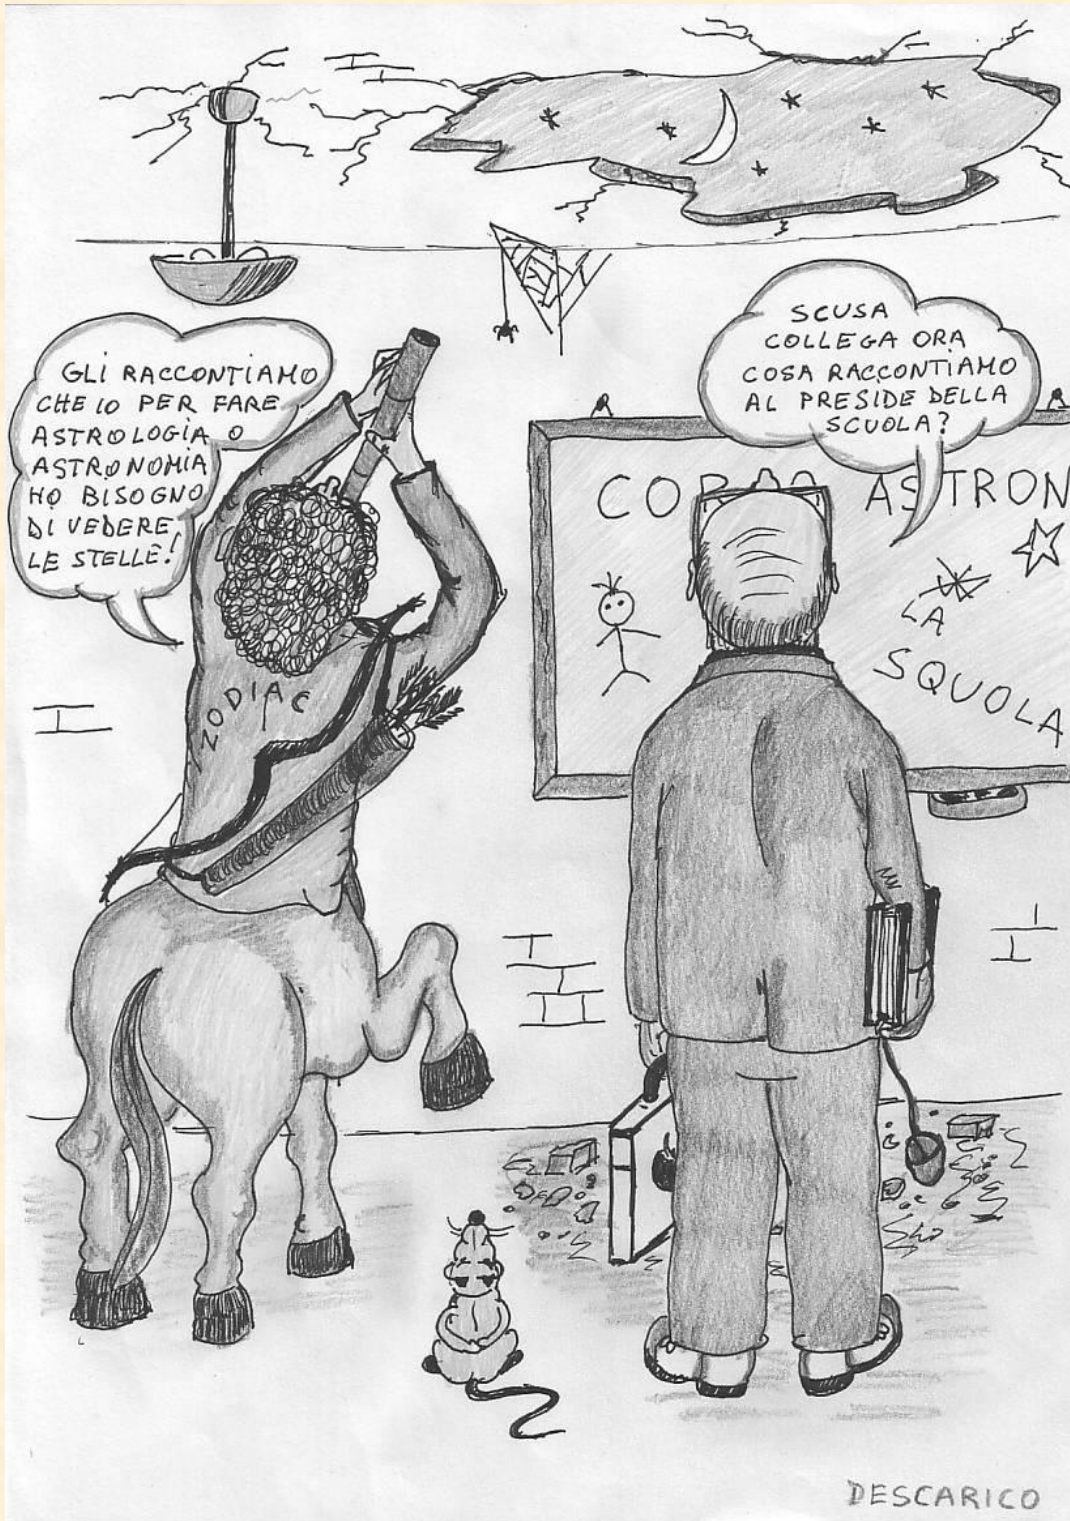 GLI RACCONTIAMO
CHE IO PER FARE
ASTROLOGIA O
ASTRONOMIA
HO BISOGNO
DI VEDERE
LE STELLE!
SCUSA
COLLEGA ORA
COSA RACCONTIAMO
AL PRESIDE DELLA
SCUOLA?
ASTRON
LA
SQUOLA
ZODIAC
DESCARICO